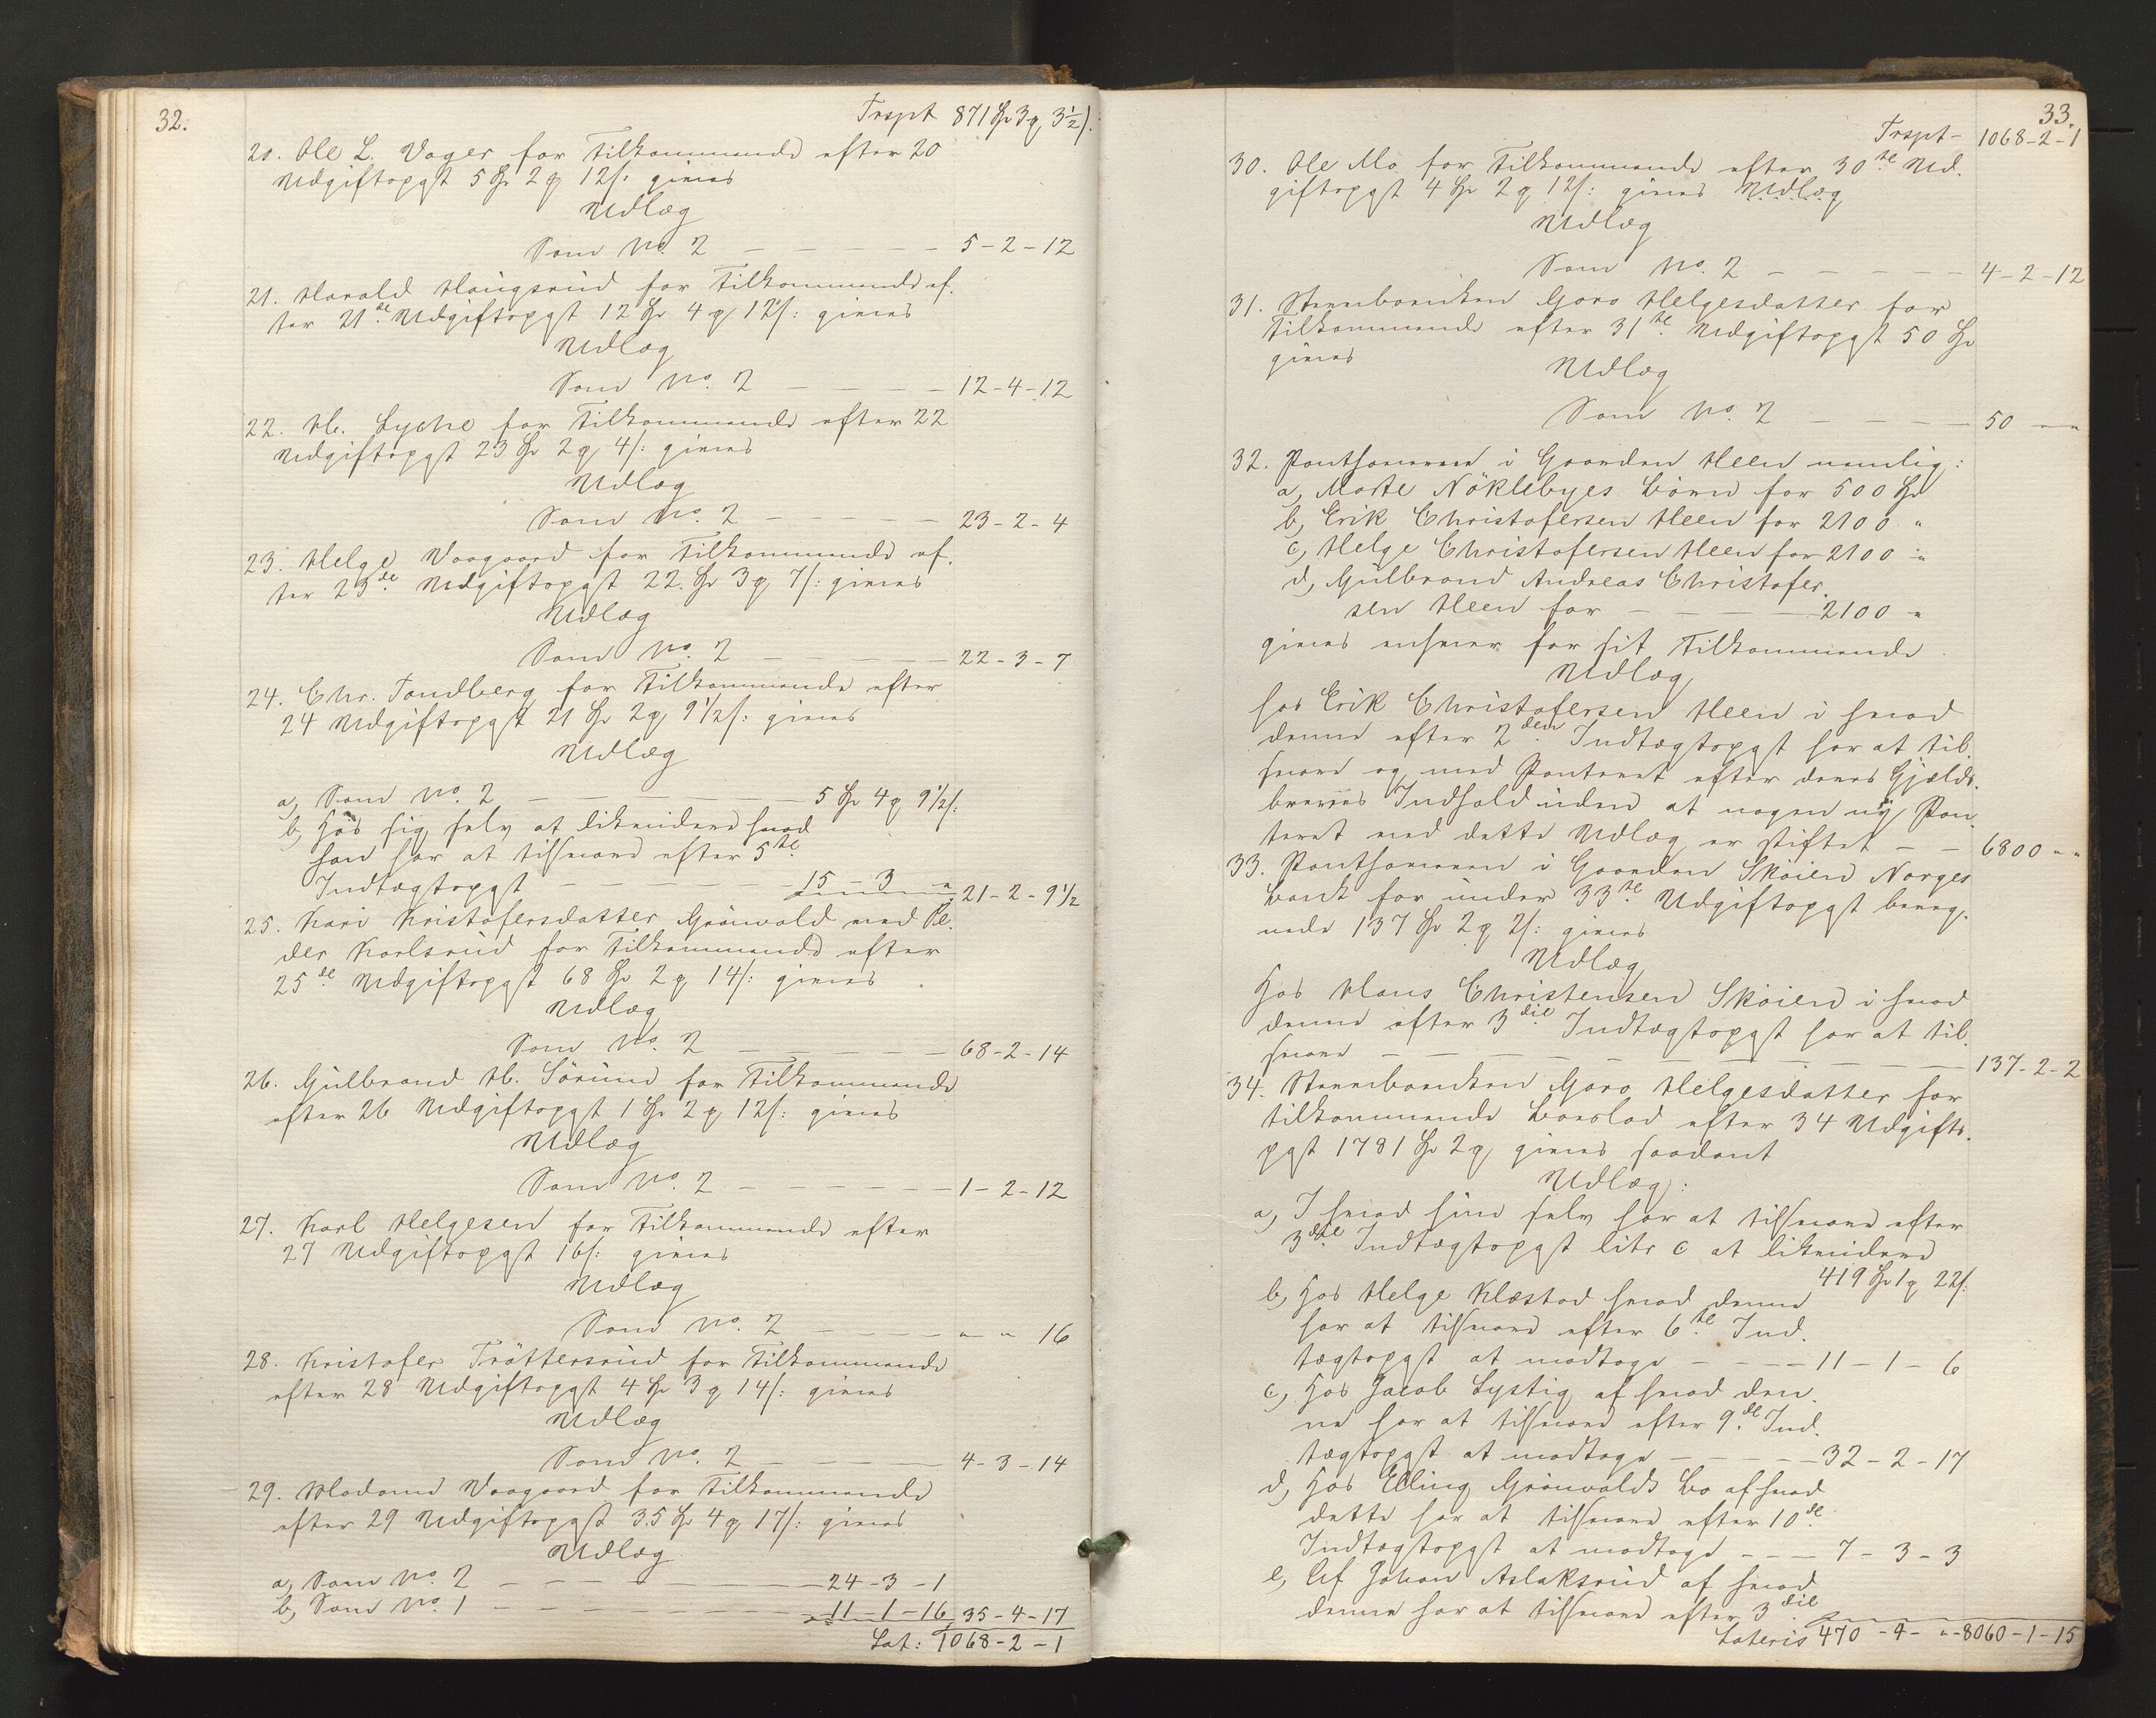 32.
Trspt 871 Spd 3 ₰ 3½ /:
20. Ole L. Vager for Tilkommende efter 20
Udgiftspost 5 Spd 2 ₰ 12 /: gives
Udlæg
Som No. 2 — — — — — 5-2-12
21. Harald Haugsrud for Tilkommende ef-
ter 21de Udgiftspost 12 Spd 4 ₰ 12 /: gives
Udlæg
Som No. 2 — — — — 12-4-12
22. H. Lyche for Tilkommende efter 22
Udgiftspost 23 Spd 2 ₰ 4 /: gives
Udlæg
Som No. 2 — — — — — 23-2-4
23. Helge Vaagaard for Tilkommende ef-
ter 23de Udgiftspost 22 Spd 3 ₰ 7 /: gives
Udlæg
Som No. 2 — — — — — 22-3-7
24. Chr. Tandberg for Tilkommende efter
24 Udgiftspost 21 Spd 2 ₰ 9½ /: gives
Udlæg
a, Som No. 2 — — — — 5 Spd 4 ₰ 9½ /:
b, Hos sig selv at likvidere hvad
han har at tilsvare efter 5te
Indtægtspost — — — — 15 - 3 " 21-2-9½
25. Kari Kristofersdatter Grönvold med Pe-
der Karlsrud for Tilkommende efter
25de Udgiftspost 68 Spd 2 ₰ 14 /: gives
Udlæg
Som No. 2 — — — — — 68-2-14
26. Gulbrand H. Sörum for Tilkommende
efter 26 Udgiftspost 1 Spd 2 ₰ 12 /: gives
Udlæg
Som No. 2 — — — — — 1-2-12
27. Karl Helgesen for Tilkommende efter
27 Udgiftspost 16 /: gives
Udlæg
Som No. 2 — — — — " " 16
28. Kristofer Tröttersrud for Tilkommende
efter 28 Udgiftspost 4 Spd 3 ₰ 14 /: gives
Udlæg
Som No. 2 — — — — 4-3-14
29. Madame Vaagaard for Tilkommende
efter 29 Udgiftspost 35 Spd 4 ₰ 17 /: gives
Udlæg
a, Som No. 2 — — — — 24-3-1
b, Som No. 1 — — — — 11-1-16 35-4-17
Lat: 1068-2-1
33.
Trspt - 1068-2-1
30. Ole Mo for Tilkommende efter 30te Ud-
giftspost 4 Spd 2 ₰ 12 /: gives Udlæg
Udlæg
Som No. 2 — — — — — 4-2-12
31. Stervboenken Goro Helgesdatter for
Tilkommende efter 31te Udgiftspost 50 Spd
gives
Udlæg
Som No. 2 — — — — 50 " "
32. Panthaverne i Gaarden Heen nemlig:
a, Marte Nöklebyes Börn for 500 Spd
b, Erik Christofersen Heen for 2100 "
c, Helge Christofersen Heen for 2100 "
d, Gulbrand Andreas Christofer-
sen Heen for — — — 2100 "
gives enhver for sit Tilkommende
Udlæg
hos Erik Christofersen Heen i hvad
denne efter 2den Indtægtspost har at til-
svare og med Panteret efter deres Gjælds-
brevers Indhold uden at nogen ny Pan-
teret ved dette Udlæg er stiftet — — 6800 " "
33. Panthaveren i Gaarden Sköien Norges
Bank for under 33te Udgiftspost bereg-
nede 137 Spd 2 ₰ 2 /: gives
Udlæg
Hos Hans Christensen Sköien i hvad
denne efter 3die Indtægtspost har at til-
svare — — — — — — — — 137-2-2
34. Stervboenken Goro Helgesdatter for
tilkommende Boeslod efter 34 Udgifts-
post 1781 Spd 2 ₰ gives saadant
Udlæg:
a, I hvad hun selv har at tilsvare efter
3die Indtægtspost litr c at likvidere
419 Spd 1 ₰ 22 /:
b, Hos Helge Klæstad hvad denne
har at tilsvare efter 6te Ind-
tægtspost at modtage — — — 11-1-6
c, Hos Jacob Lystig af hvad den-
ne har at tilsvare efter 9de Ind-
tægtspost at modtage — — — — 32-2-17
d, Hos Elling Grönvolds Bo af hvad
dette har at tilsvare efter 10de
Indtægtspost at modtage — — — 7-3-3
e, Af Johan Aslaksrud af hvad
denne har at tilsvare efter 3die
Lateris 470-4-" - 8060-1-15